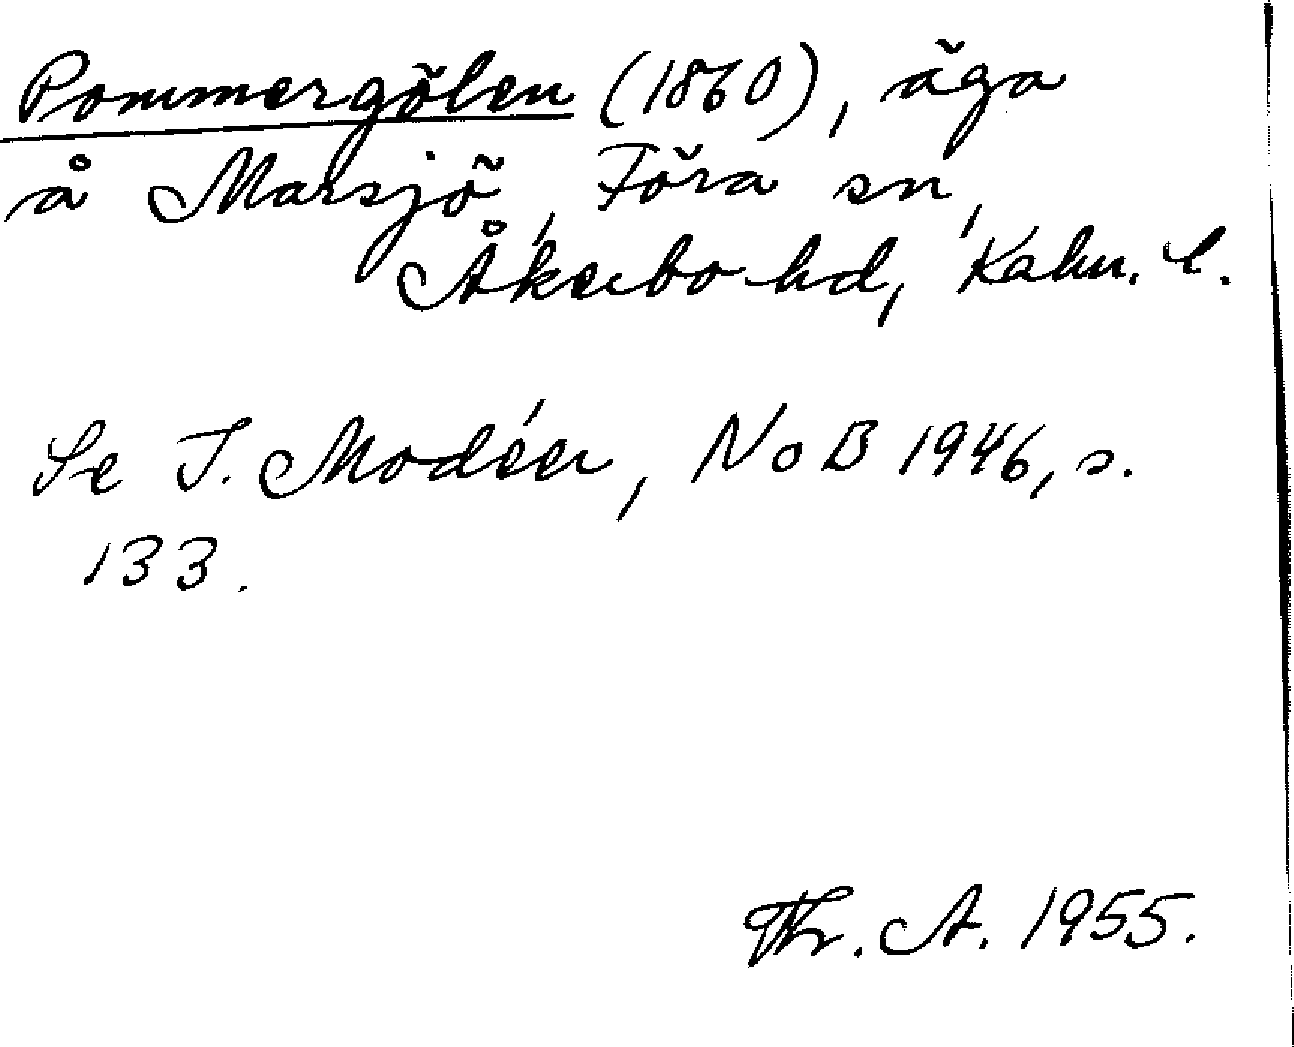 Pommergölen (1860), äga
å Marsjö, Föra sn,
Åkerbo hd, Kalm. l.
Se I. Modéer, NoB 1946, s.
133.
Th. A. 1955.